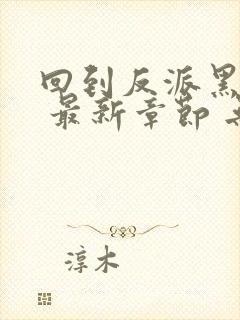 回到反派黑
最新章節
淳木